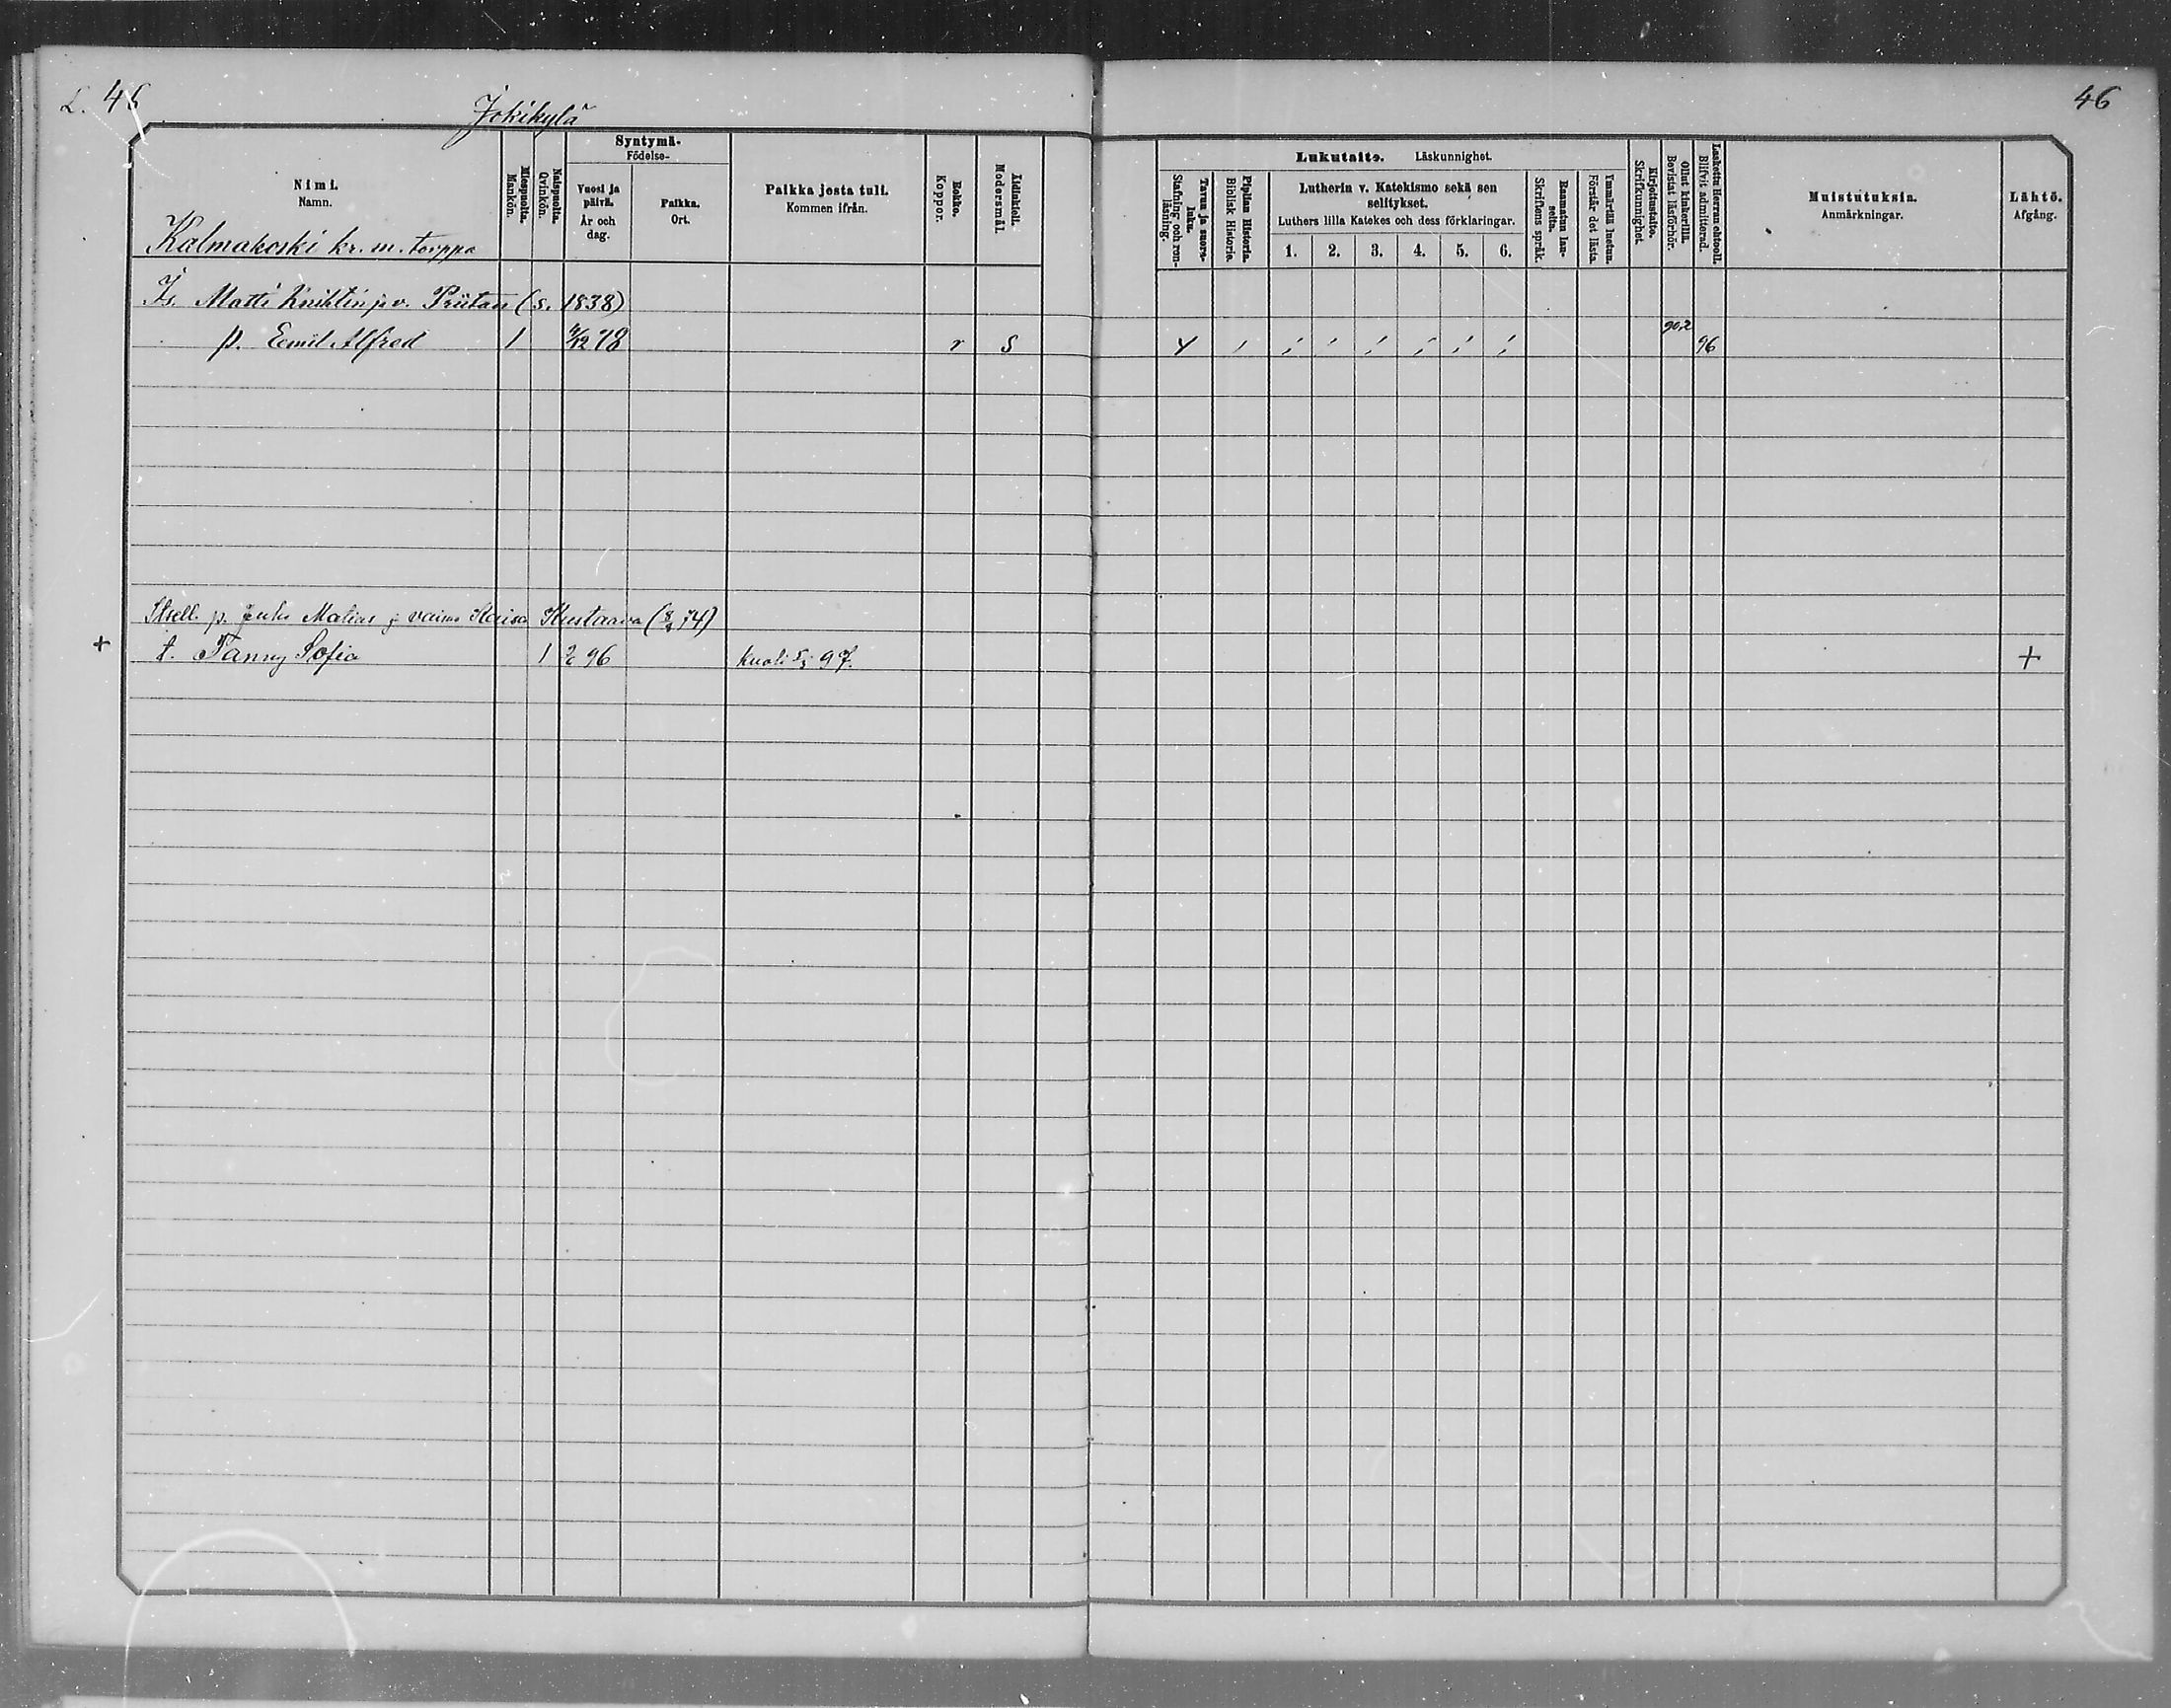 L. 46
46
Jokikylä
Nimi.
Namn.
Miespuolta.
Mankön.
Naispuolta.
Qvinkön.
Syntymä-
Födelse-
Vuosi ja
päivä.
År och
dag.
Paikka.
Ort.
Paikka josta tuli.
Kommen ifrån.
Rokko.
Koppor.
Äidinkieli.
Modersmål.
Lukutaito. Läskunnighet.
Tavuu ja suora-
luku.
Stafning och ren-
läsning.
Piplian Historia.
Biblisk Historie.
Lutherin v. Katekismo sekä sen
selitykset.
Luthers lilla Katekes och dess förklaringar.
1. 2. 3. 4. 5. 6.
Raamatun lau-
seita.
Skriftens språk.
Ymmärtää luetun.
Förstår det lästa.
Kirjoitustaito.
Skrifkunnighet.
Ollut kinkerillä.
Bevistat läsförhör.
Laskettu Herran ehtooll.
Blifvit admitterad.
Muistutuksia.
Anmärkningar.
Lähtö.
Afgång.
Kalmakoski kr. m. torppa
Is. Matti Knihtin j. v. Priitan (s. 1838)
p. Eemil Alfred 1 4/12 78 r S 90,2 96
p. Juho Matias j. vaimo Kustaava 74)
+ t. Fanny Sofia 1 96 kuoli 97. +